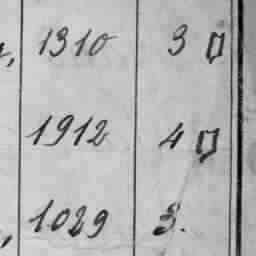 1310 3
1912 4
1029 3.